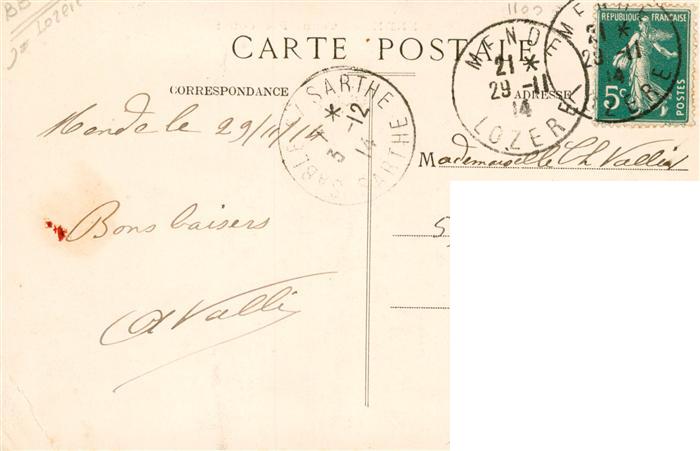 BB
Lozère
1102
CARTE POSTALE
CORRESPONDANCE
ADRESSE
RÉPUBLIQUE FRANÇAISE
5c
POSTES
MENDE
21 *
29 -11
14
LOZERE
MENDE
21 *
29 -11
14
LOZERE
SABLÉ-SUR-SARTHE
*
3 -12
14
SARTHE
Mende le 29/11/14
Mademoiselle Ch. Vallié
Bons baisers
A Vallié